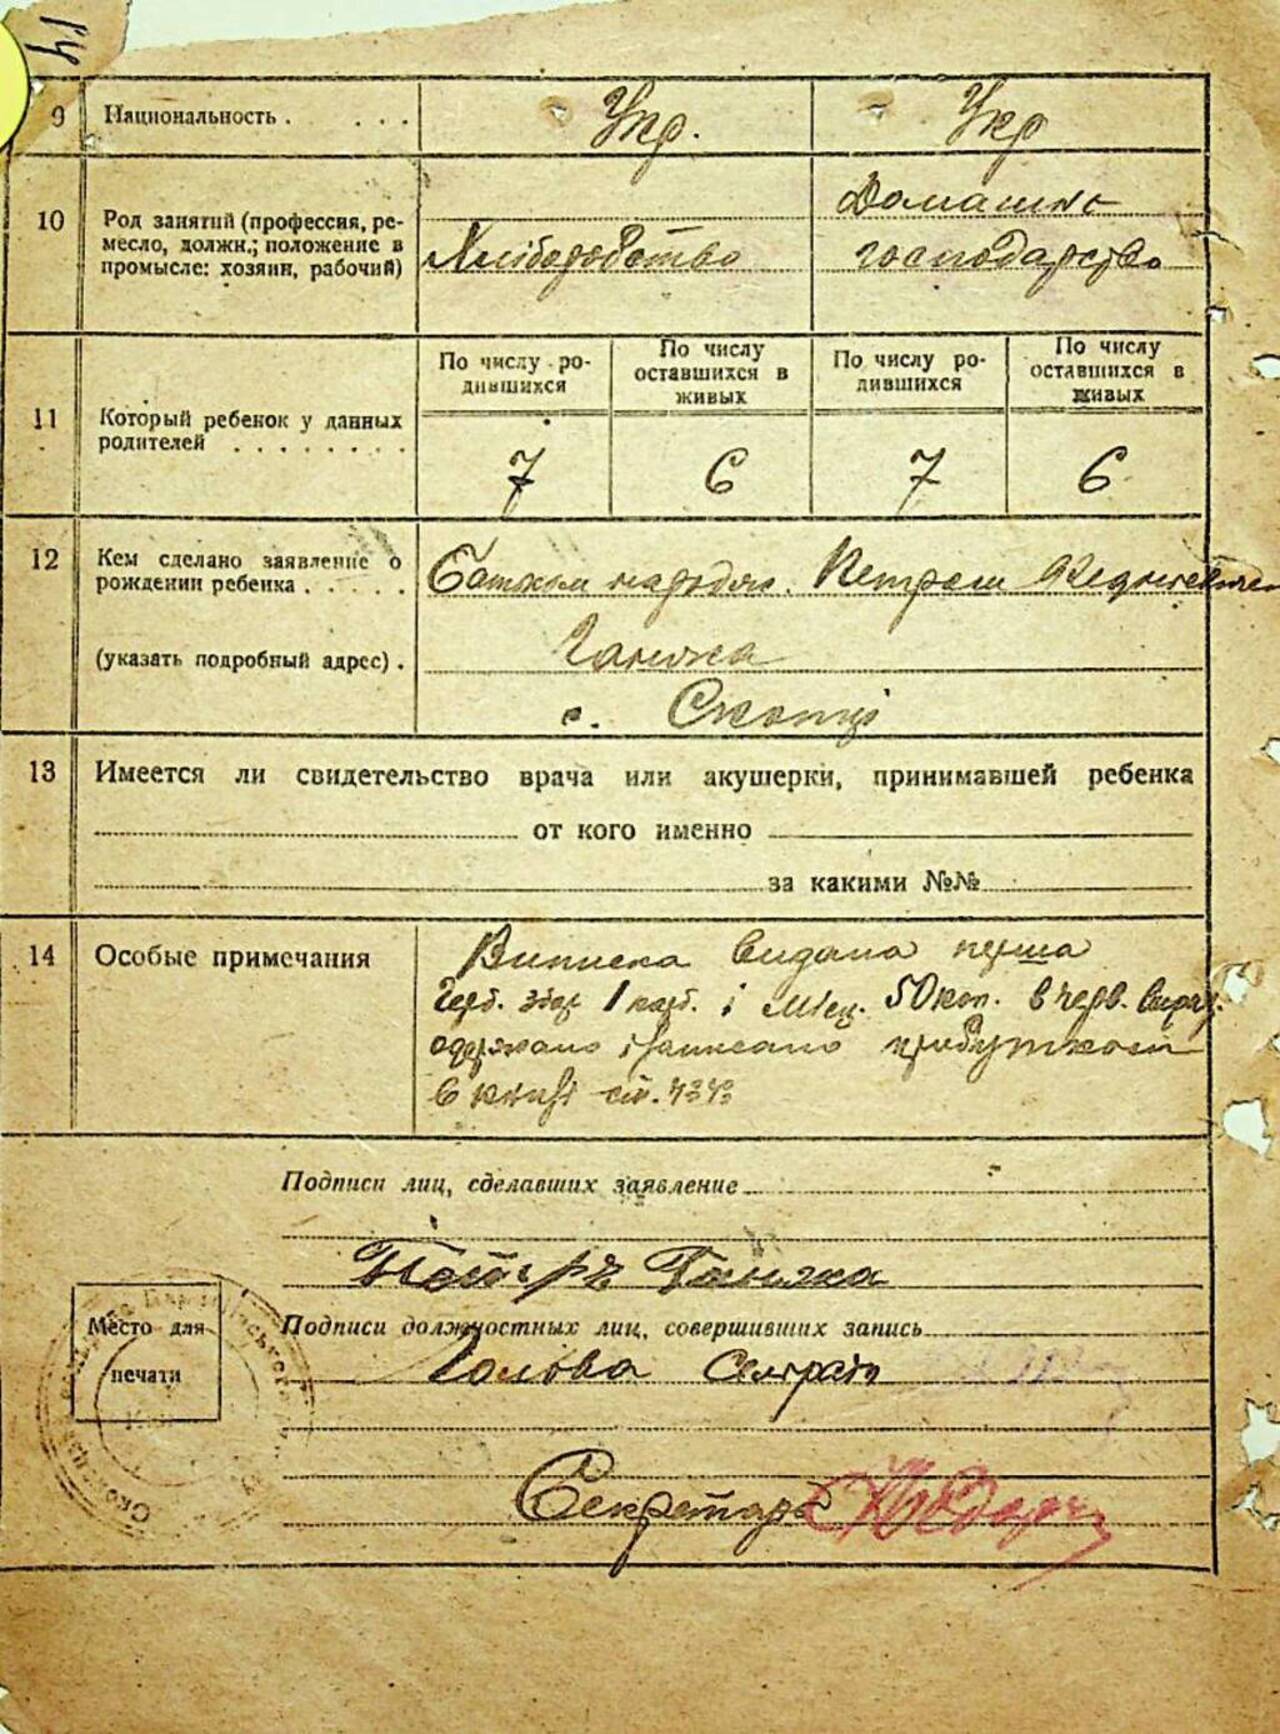 14
9 Национальность . . . . Укр. Укр
10 Род занятий (профессия, ре-
месло, должн.; положение в
промысле: хозяин, рабочий)
Хліборобство
Домашнє
господарство
11 Который ребенок у данных
родителей . . . . . . . .
По числу ро-
дившихся
По числу
оставшихся в
живых
По числу ро-
дившихся
По числу
оставшихся в
живых
7 6 7 6
12 Кем сделано заявление о
рождении ребенка . . . . .
(указать подробный адрес) .
Батьком народж. Петром
Ганжа
с. Скопці
13 Имеется ли свидетельство врача или акушерки, принимавшей ребенка
от кого именно
за какими №№
14 Особые примечания
Виписка видана перша
Герб. збор 1 карб. і міец. 50 коп. в черв.
одержано і записано прибутком
в книзі ст.
Подписи лиц, сделавших заявление
Петръ Ганжа
Место для
печати
Подписи должностных лиц, совершивших запись
Голова Сельради
Секретарь